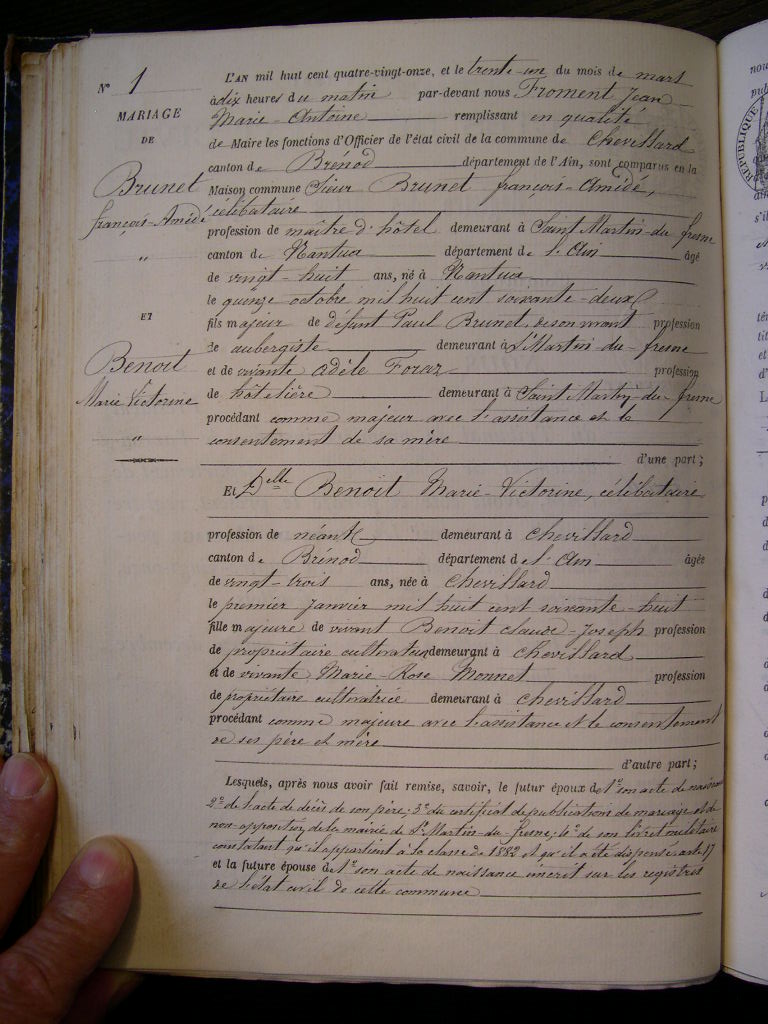 N° 1
MARIAGE
DE
Brunet
françois-Amédé
"
ET
Benoit
Marie Victorine
"
L'AN mil huit cent quatre-vingt-onze, et le trente-un du mois de mars
à dix heures du matin par-devant nous Froment Jean
Marie-Antoine remplissant en qualité
de Maire les fonctions d'Officier de l'état civil de la commune de Chevillard
canton de Brénod département de l'Ain, sont comparus en la
Maison commune Sieur Brunet françois-Amédé,
célibataire
profession de maître d'hôtel demeurant à Saint Martin-du fresne
canton de Nantua département de l'Ain âgé
de vingt-huit ans, né à Nantua
le quinze octobre mil huit cent soixante-deux
fils majeur de défunt Paul Brunet, de son vivant profession
de aubergiste demeurant à St Martin-du-fresne
et de vivante adèle profession
de hôtelière demeurant à Saint Martin-du-fresne
procédant comme majeur avec l'assistance et le
consentement de sa mère
d'une part;
Et Delle Benoit Marie-Victorine, célibataire
profession de néant demeurant à chevillard
canton de Brénod département de l'Ain âgée
de vingt-trois ans, née à Chevillard
le premier Janvier mil huit cent soixante-huit
fille majeure de vivant Benoit claude-Joseph profession
de propriétaire cultivateur demeurant à chevillard
et de vivante Marie-Rose Monnet profession
de propriétaire cultivatrice demeurant à chevillard
procédant comme majeure avec l'assistance et le consentement
de ses père et mère
d'autre part;
Lesquels, après nous avoir fait remise, savoir, le futur époux de 1° son acte de naissance
2° de l'acte de décès de son père; 3° du certificat de publications de mariage et de
non-opposition de la mairie de St Martin-du-fresne; 4° de son livret militaire
constatant qu'il appartient à la classe de 1882 et qu'il a été dispensé art. 17
et la future épouse de 1° son acte de naissance inscrit sur les registres
de l'état civil de cette commune
RÉPUBLIQUE